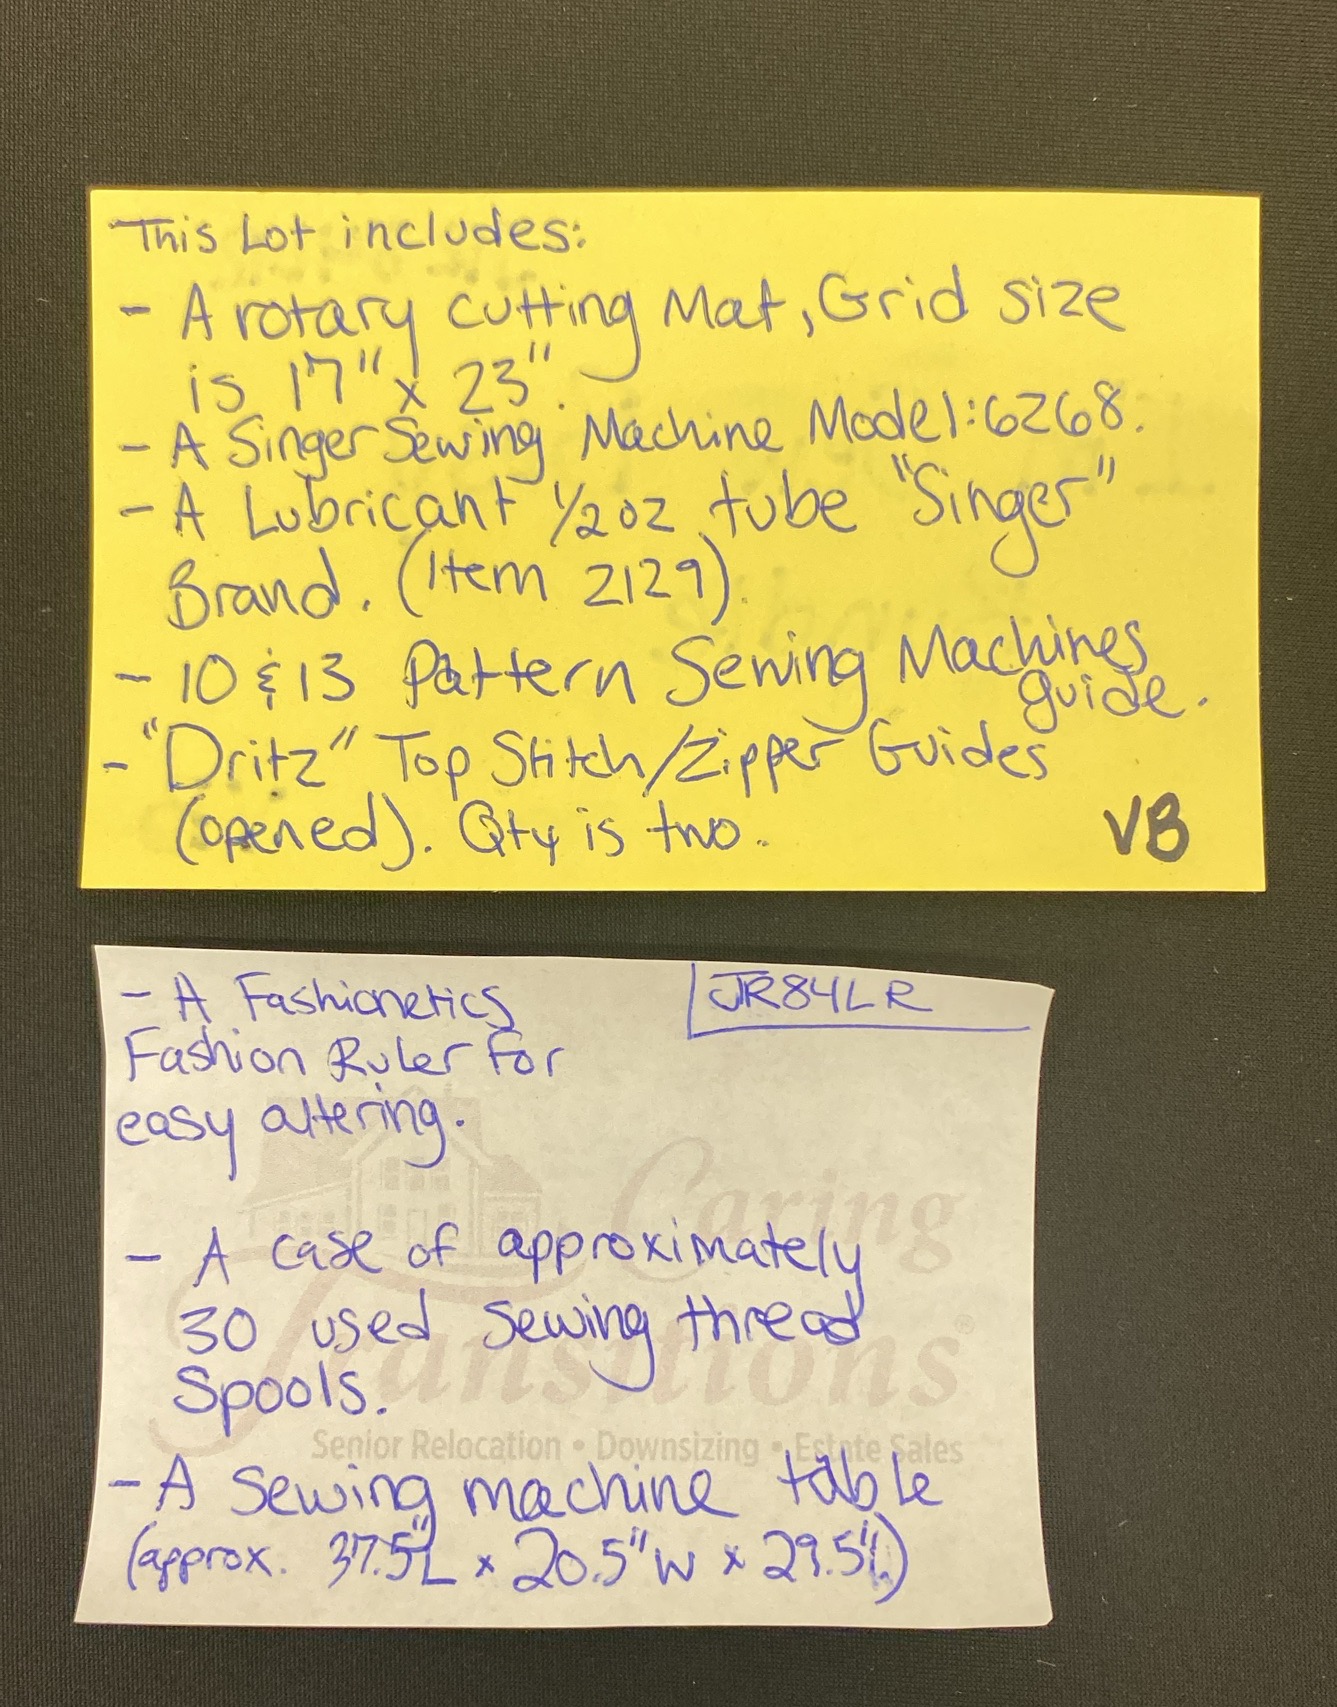 This Lot includes:
- A rotary cutting Mat, Grid size
is 17" x 23".
- A Singer Sewing Machine Model:6268.
- A Lubricant 1/2 oz tube "Singer"
Brand. (Item 2129)
- 10 & 13 Pattern Sewing Machines
guide.
- "Dritz" Top Stitch/Zipper Guides
(opened). Qty is two.
VB
- A Fashionetics
JR84LR
Fashion Ruler for
easy altering.
- A case of approximately
30 used sewing thread
Spools.
- A sewing machine table
(approx. 37.5"L x 20.5"W x 29.5")
Caring
Transitions®
Senior Relocation • Downsizing • Estate Sales